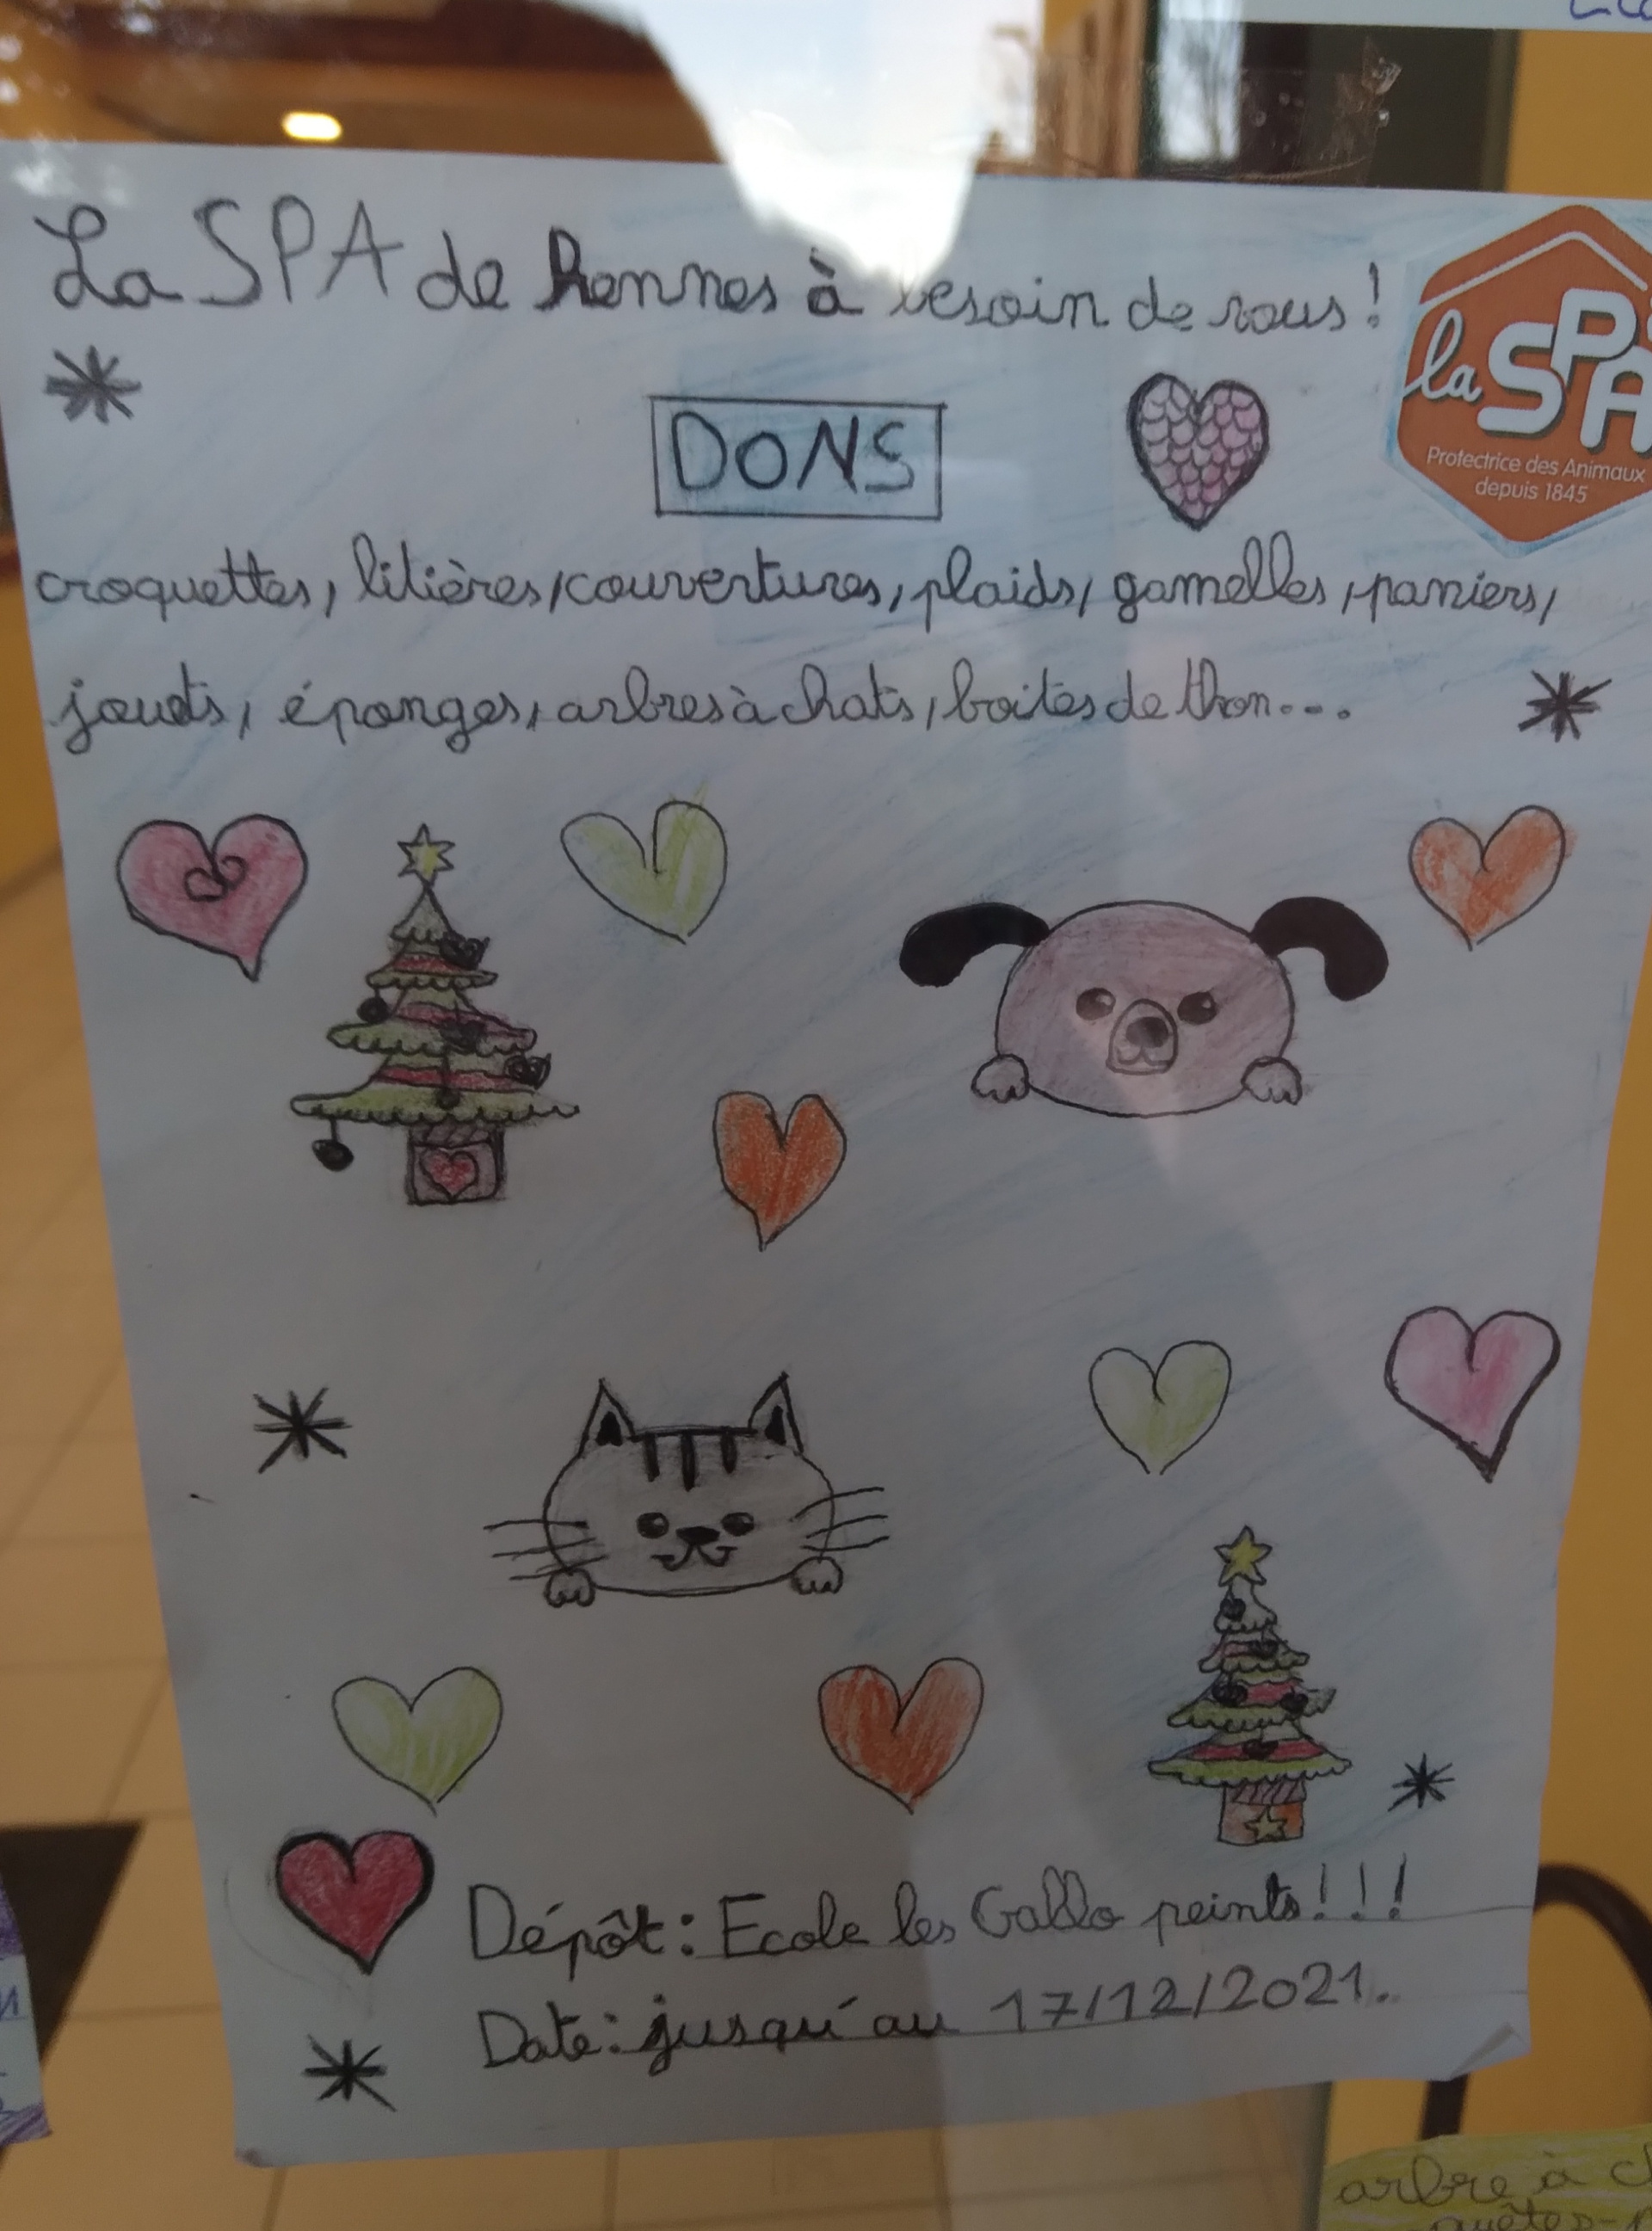 La SPA de Rennes à besoin de vous !
la SPA
Protectrice des Animaux
depuis 1845
DONS
croquettes, litières, couvertures, plaids, gamelles, paniers,
jouets, éponges, arbres à chats, boites de thon...
Dépôt : Ecole les Gallo peints !!!
Date : jusqu'au 17/12/2021.
arbre à